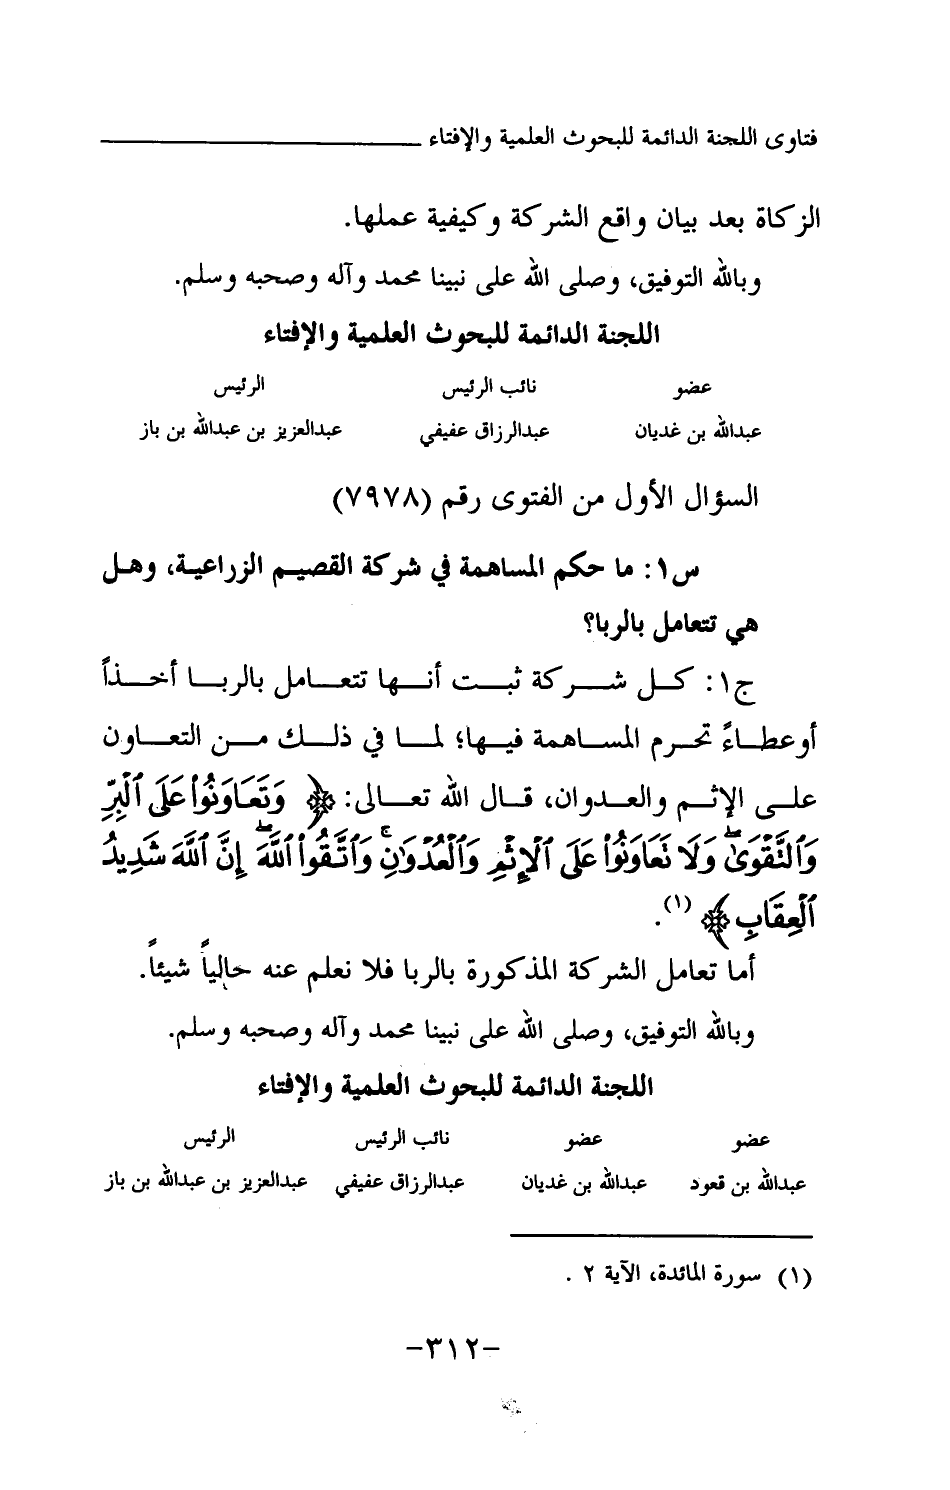 فتاوى اللجنة الدائمة للبحوث العلمية والإفتاء
الزكاة بعد بيان واقع الشركة وكيفية عملها.
وبالله التوفيق، وصلى الله على نبينا محمد وآله وصحبه وسلم.
اللجنة الدائمة للبحوث العلمية والإفتاء
عضو نائب الرئيس الرئيس
عبدالله بن غديان عبدالرزاق عفيفي عبدالعزيز بن عبدالله بن باز
السؤال الأول من الفتوى رقم (٧٩٧٨)
س١: ما حكم المساهمة في شركة القصيم الزراعية، وهل
هي تتعامل بالربا؟
ج١: كل شركة ثبت أنها تتعامل بالربا أخذاً
أو عطاءً تحرم المساهمة فيها؛ لما في ذلك من التعاون
على الإثم والعدوان، قال الله تعالى: ﴿ وَتَعَاوَنُوا۟ عَلَى ٱلْبِرِّ
وَٱلتَّقْوَىٰ ۖ وَلَا تَعَاوَنُوا۟ عَلَى ٱلْإِثْمِ وَٱلْعُدْوَٰنِ ۚ وَٱتَّقُوا۟ ٱللَّهَ ۖ إِنَّ ٱللَّهَ شَدِيدُ
ٱلْعِقَابِ ﴾ (١).
أما تعامل الشركة المذكورة بالربا فلا نعلم عنه حالياً شيئاً.
وبالله التوفيق، وصلى الله على نبينا محمد وآله وصحبه وسلم.
اللجنة الدائمة للبحوث العلمية والإفتاء
عضو عضو نائب الرئيس الرئيس
عبدالله بن قعود عبدالله بن غديان عبدالرزاق عفيفي عبدالعزيز بن عبدالله بن باز
(١) سورة المائدة، الآية ٢ .
-٣١٢-